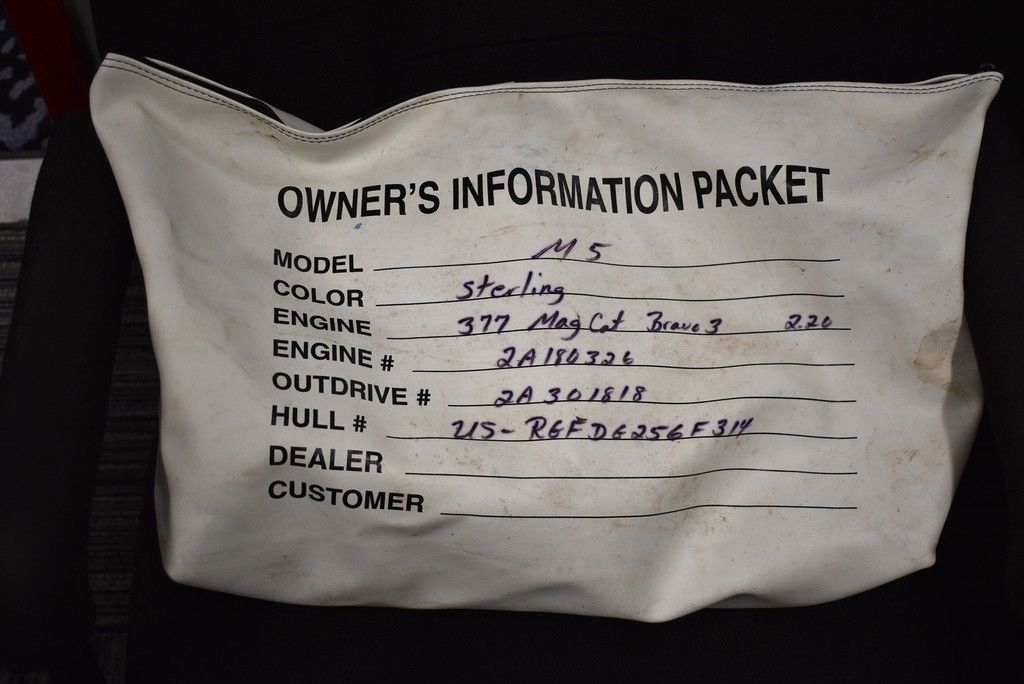 OWNER'S INFORMATION PACKET
MODEL M5
COLOR Sterling
ENGINE 377 Mag Cat Bravo 3 2.20
ENGINE # 2A180326
OUTDRIVE # 2A301818
HULL # US-RGFDG256F314
DEALER
CUSTOMER